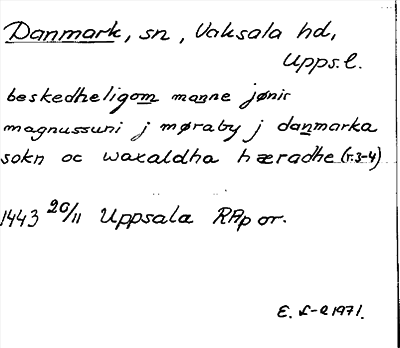 Danmark, sn, Vaksala hd,
Upps. l.
beskedheligom manne jønir
magnussuni j møraby j danmarka
sokn oc waxaldha hæradhe (r. 3-4)
1443 20/11 Uppsala RAp or.
E. L-Q 1971.